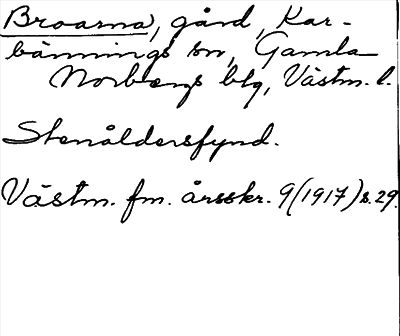 Broarna, gård, Kar-
bännings sn, Gamla
Norbergs blg, Västm. l.
Stenåldersfynd.
Västm. fm. årsskr. 9 (1917) s. 29.